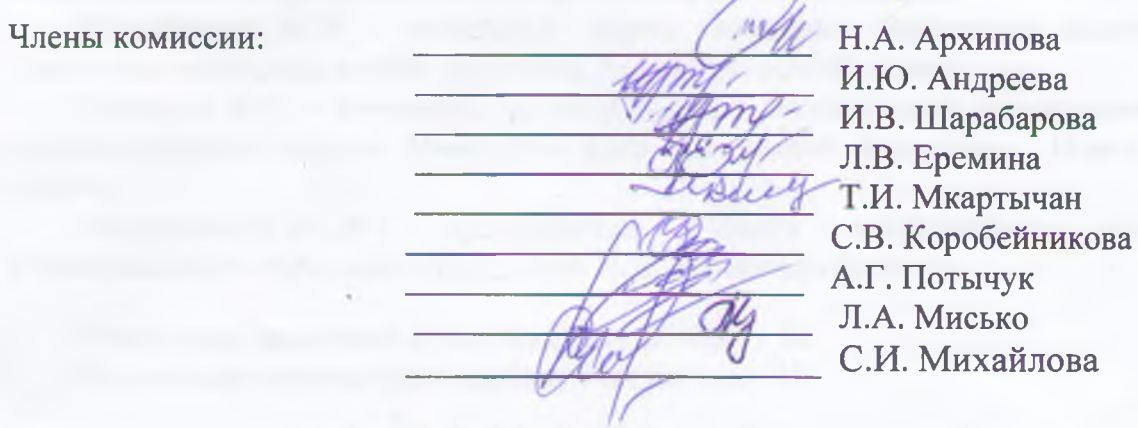 Члены комиссии:
Н.А. Архипова
И.Ю. Андреева
И.В. Шарабарова
Л.В. Еремина
Т.И. Мкартычан
С.В. Коробейникова
А.Г. Потычук
Л.А. Мисько
С.И. Михайлова